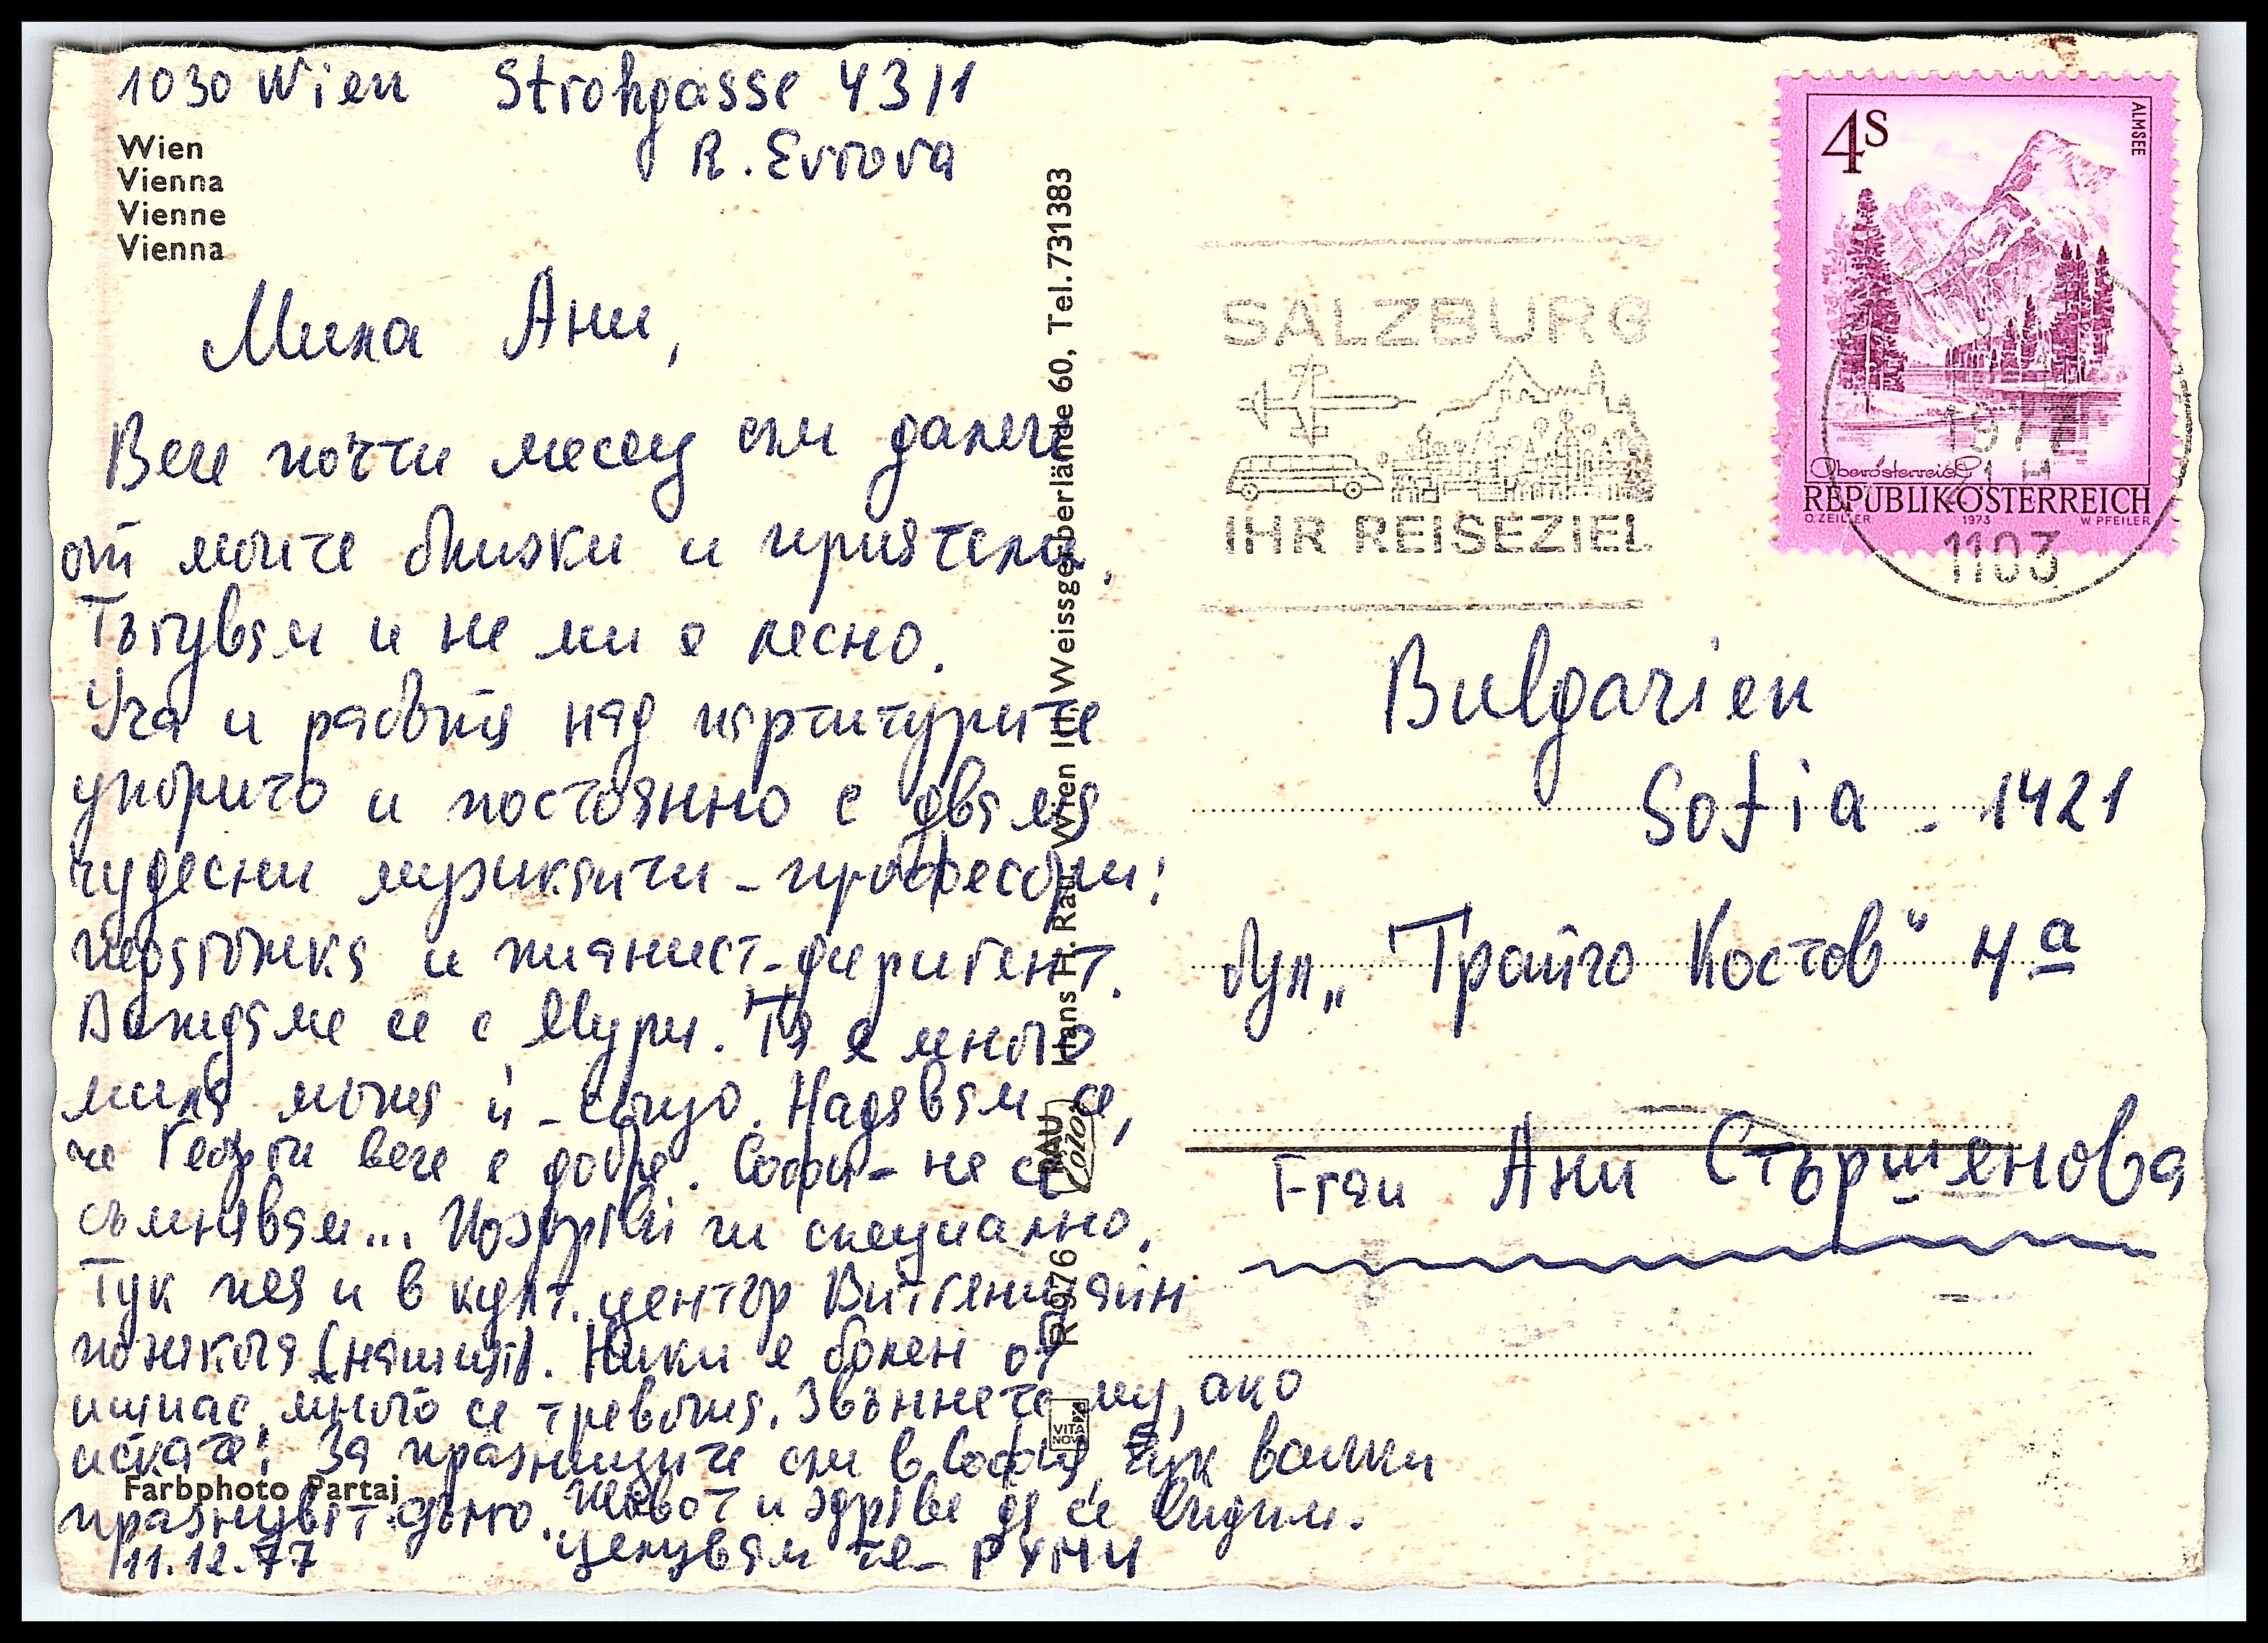 1030 Wien Strohgasse 43/1
R. Evtova
Wien
Vienna
Vienne
Vienna
Мила Ани,
Вече почти месец съм далече
от моите близки и приятели.
Тъгувам и не ми е лесно.
Уча и работя над партитурите
упорито и постоянно с двама
чудесни музиканти - професори:
педагожка и пианист-диригент.
Виждаме се с Мури. Тя е много
мила, мъжа ѝ - също. Надявам се,
че Георги вече е добре. Софи - не се
съмнявам... Поздрави ги специално.
Тук пея и в култ. център Витгенщайн
понякога (нашият). Ники е болен от
ишиас, много се тревожа. Звъннете му, ако
искате! За празниците съм в София, тук всички
празнуват дълго. Живот и здраве да се видим.
Целувам те - РУМИ
11.12.77
Farbphoto Partaj
Hans H. Rau, Wien III, Weissgerberlände 60, Tel. 731383
RAU
Color
R 9976
VITA
NOVA
SALZBURG
IHR REISEZIEL
4S
ALMSEE
Oberösterreich
REPUBLIK ÖSTERREICH
O. ZEILLER 1973 W. PFEILER
1977
1103
Bulgarien
Sofia - 1421
бул „Трайчо Костов" 4а
Frau Ани Стършенова